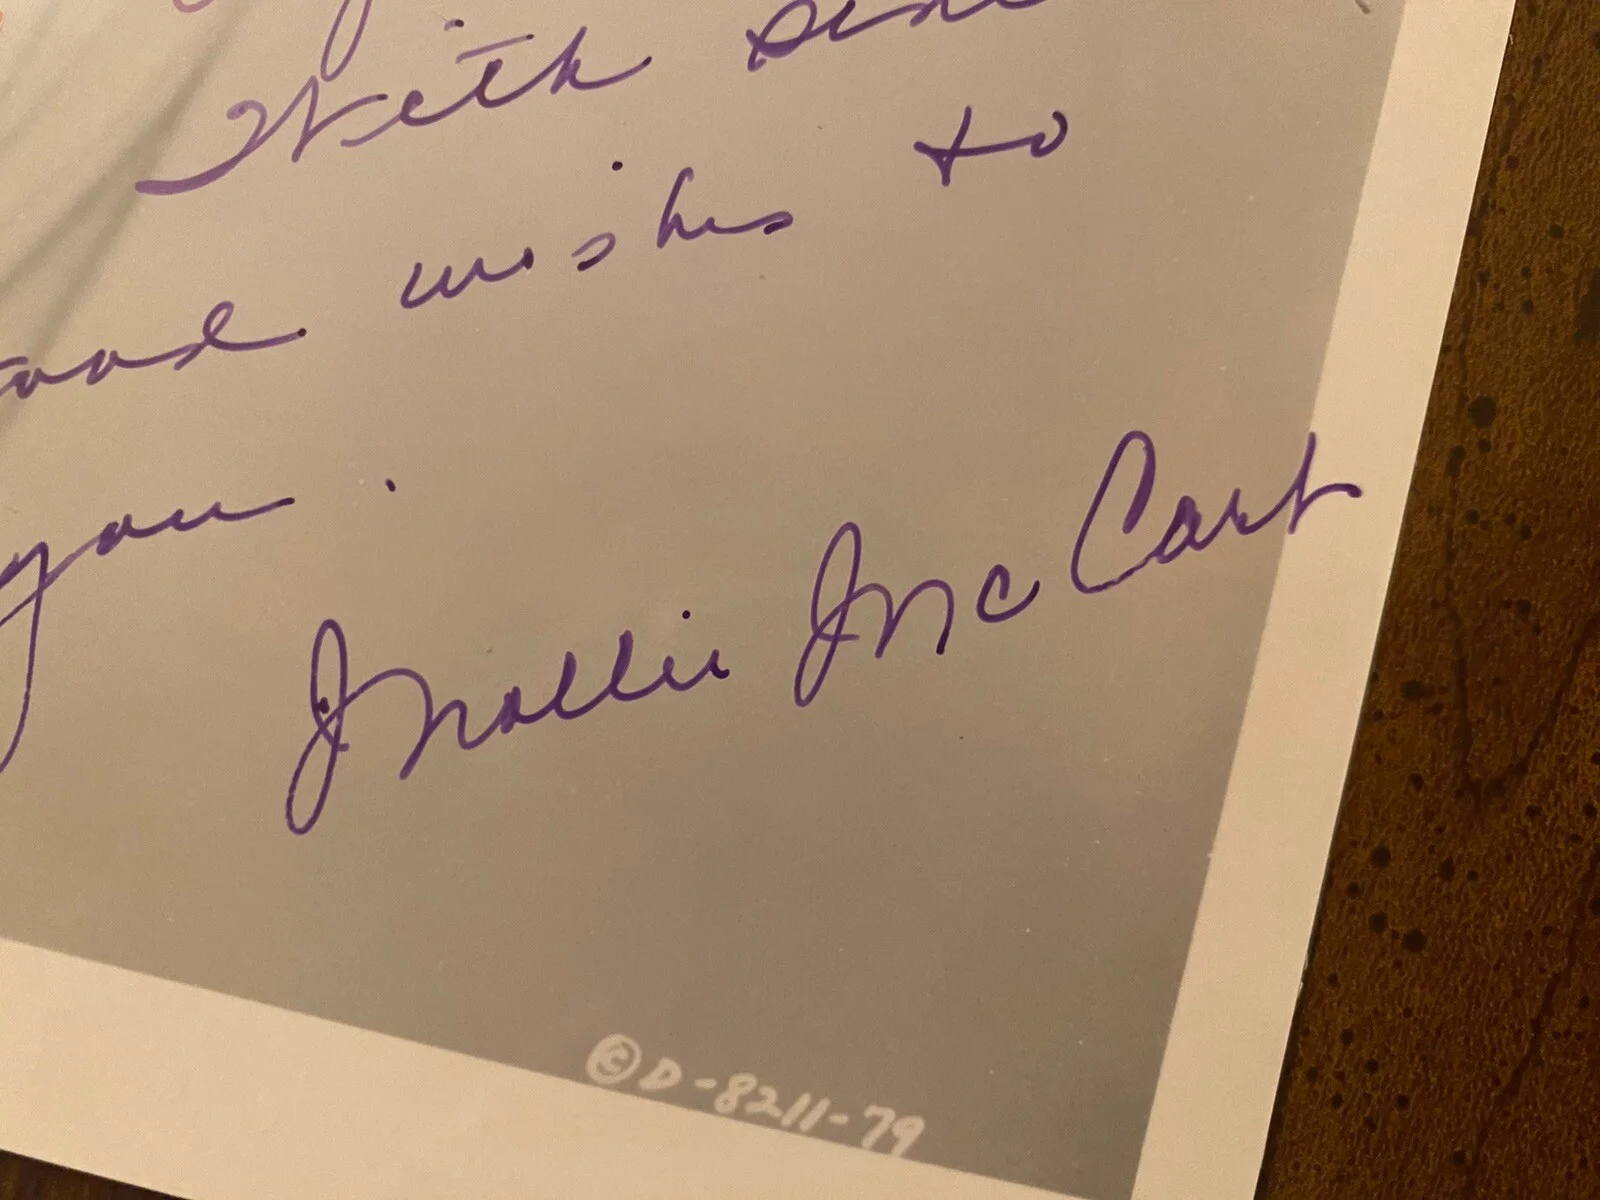 With
good wishes to
you.
Mollie McCart
©D-8211-79